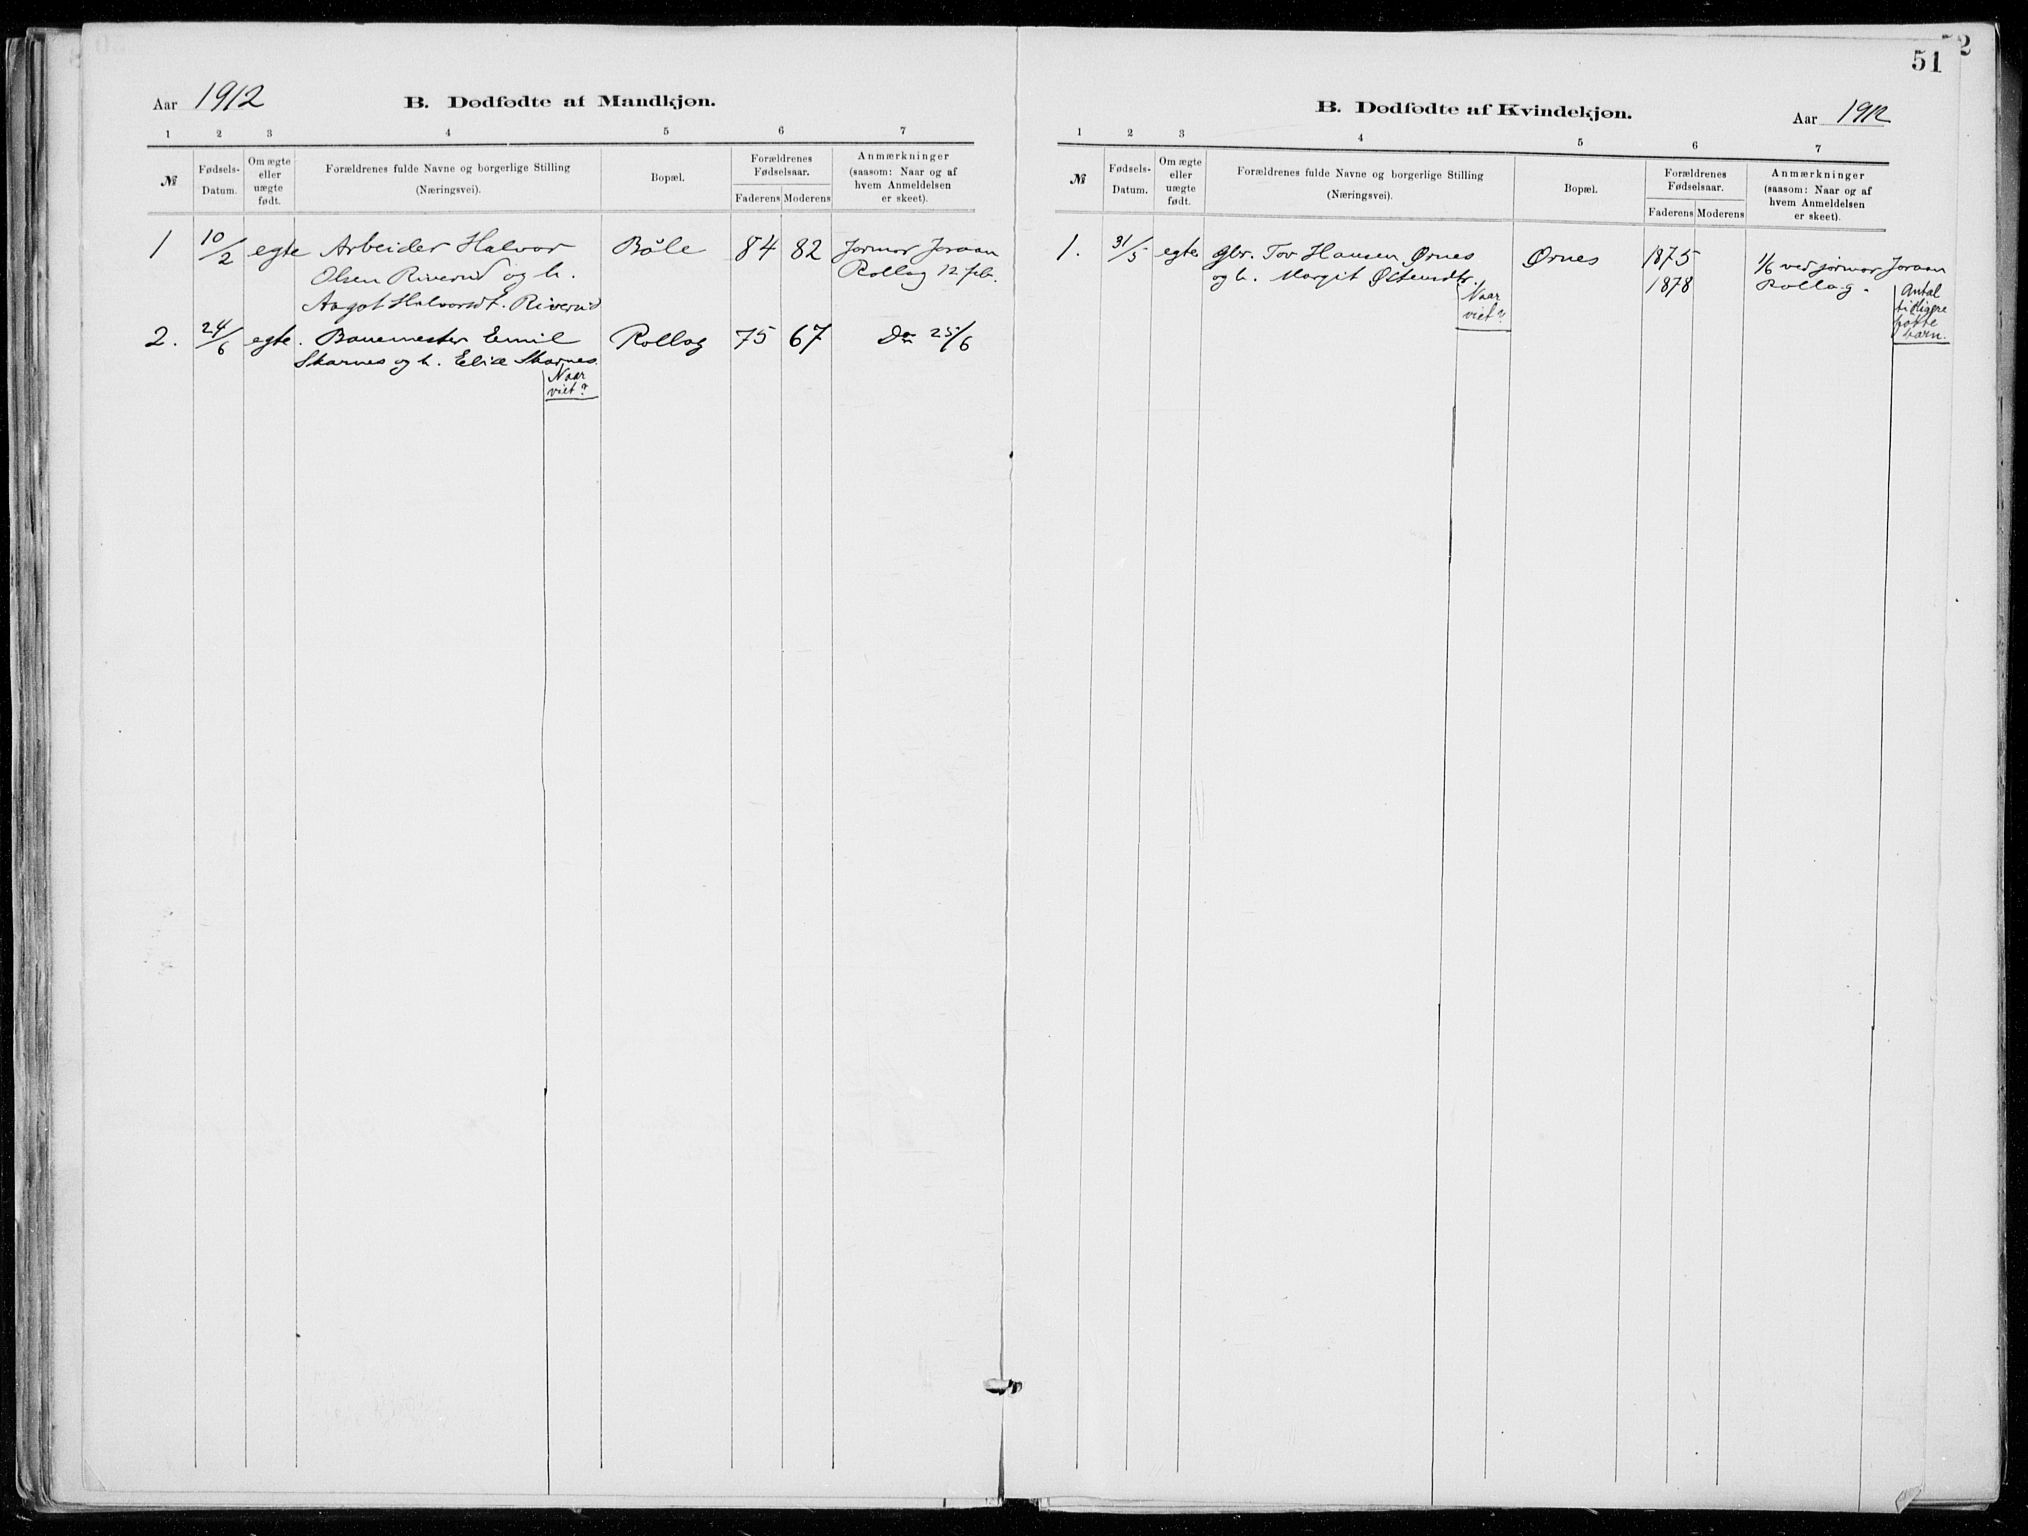 Aar 1912 B. Dødfødte af Mandkjøn.
1 2 3 4 5 6 7
№ Fødsels-Datum. Om ægte eller uægte født. Forældrenes fulde Navne og borgerlige Stilling (Næringsvei). Bopæl. Forældrenes Fødselsaar. Faderens Moderens Anmærkninger (saasom: Naar og af hvem Anmeldelsen er skeet).
1 10/2 egte Arbeider Halvor Bøle 84 82 Jormor Joraan
Olsen Riverud og h. Rollag 12 feb.
Aagot Halvorsdt. Riverud
2. 24/6 egte. Banemester Emil Rollag 75 67 Do 25/6
Skarnes og h. Elise Skarnes.
Naar
viet?
51
B. Dødfødte af Kvindekjøn. Aar 1912
1 2 3 4 5 6 7
№ Fødsels-Datum. Om ægte eller uægte født. Forældrenes fulde Navne og borgerlige Stilling (Næringsvei). Bopæl. Forældrenes Fødselsaar. Faderens Moderens Anmærkninger (saasom: Naar og af hvem Anmeldelsen er skeet).
1. 31/5 egte gbr. Tov Hansen Ørnes Ørnes 1875 1/6 ved jormor Joraan
og h. Margit Østensdtr. 1878 Rollag.
Naar
viet?
Antal
tidligere
fødte
barn.